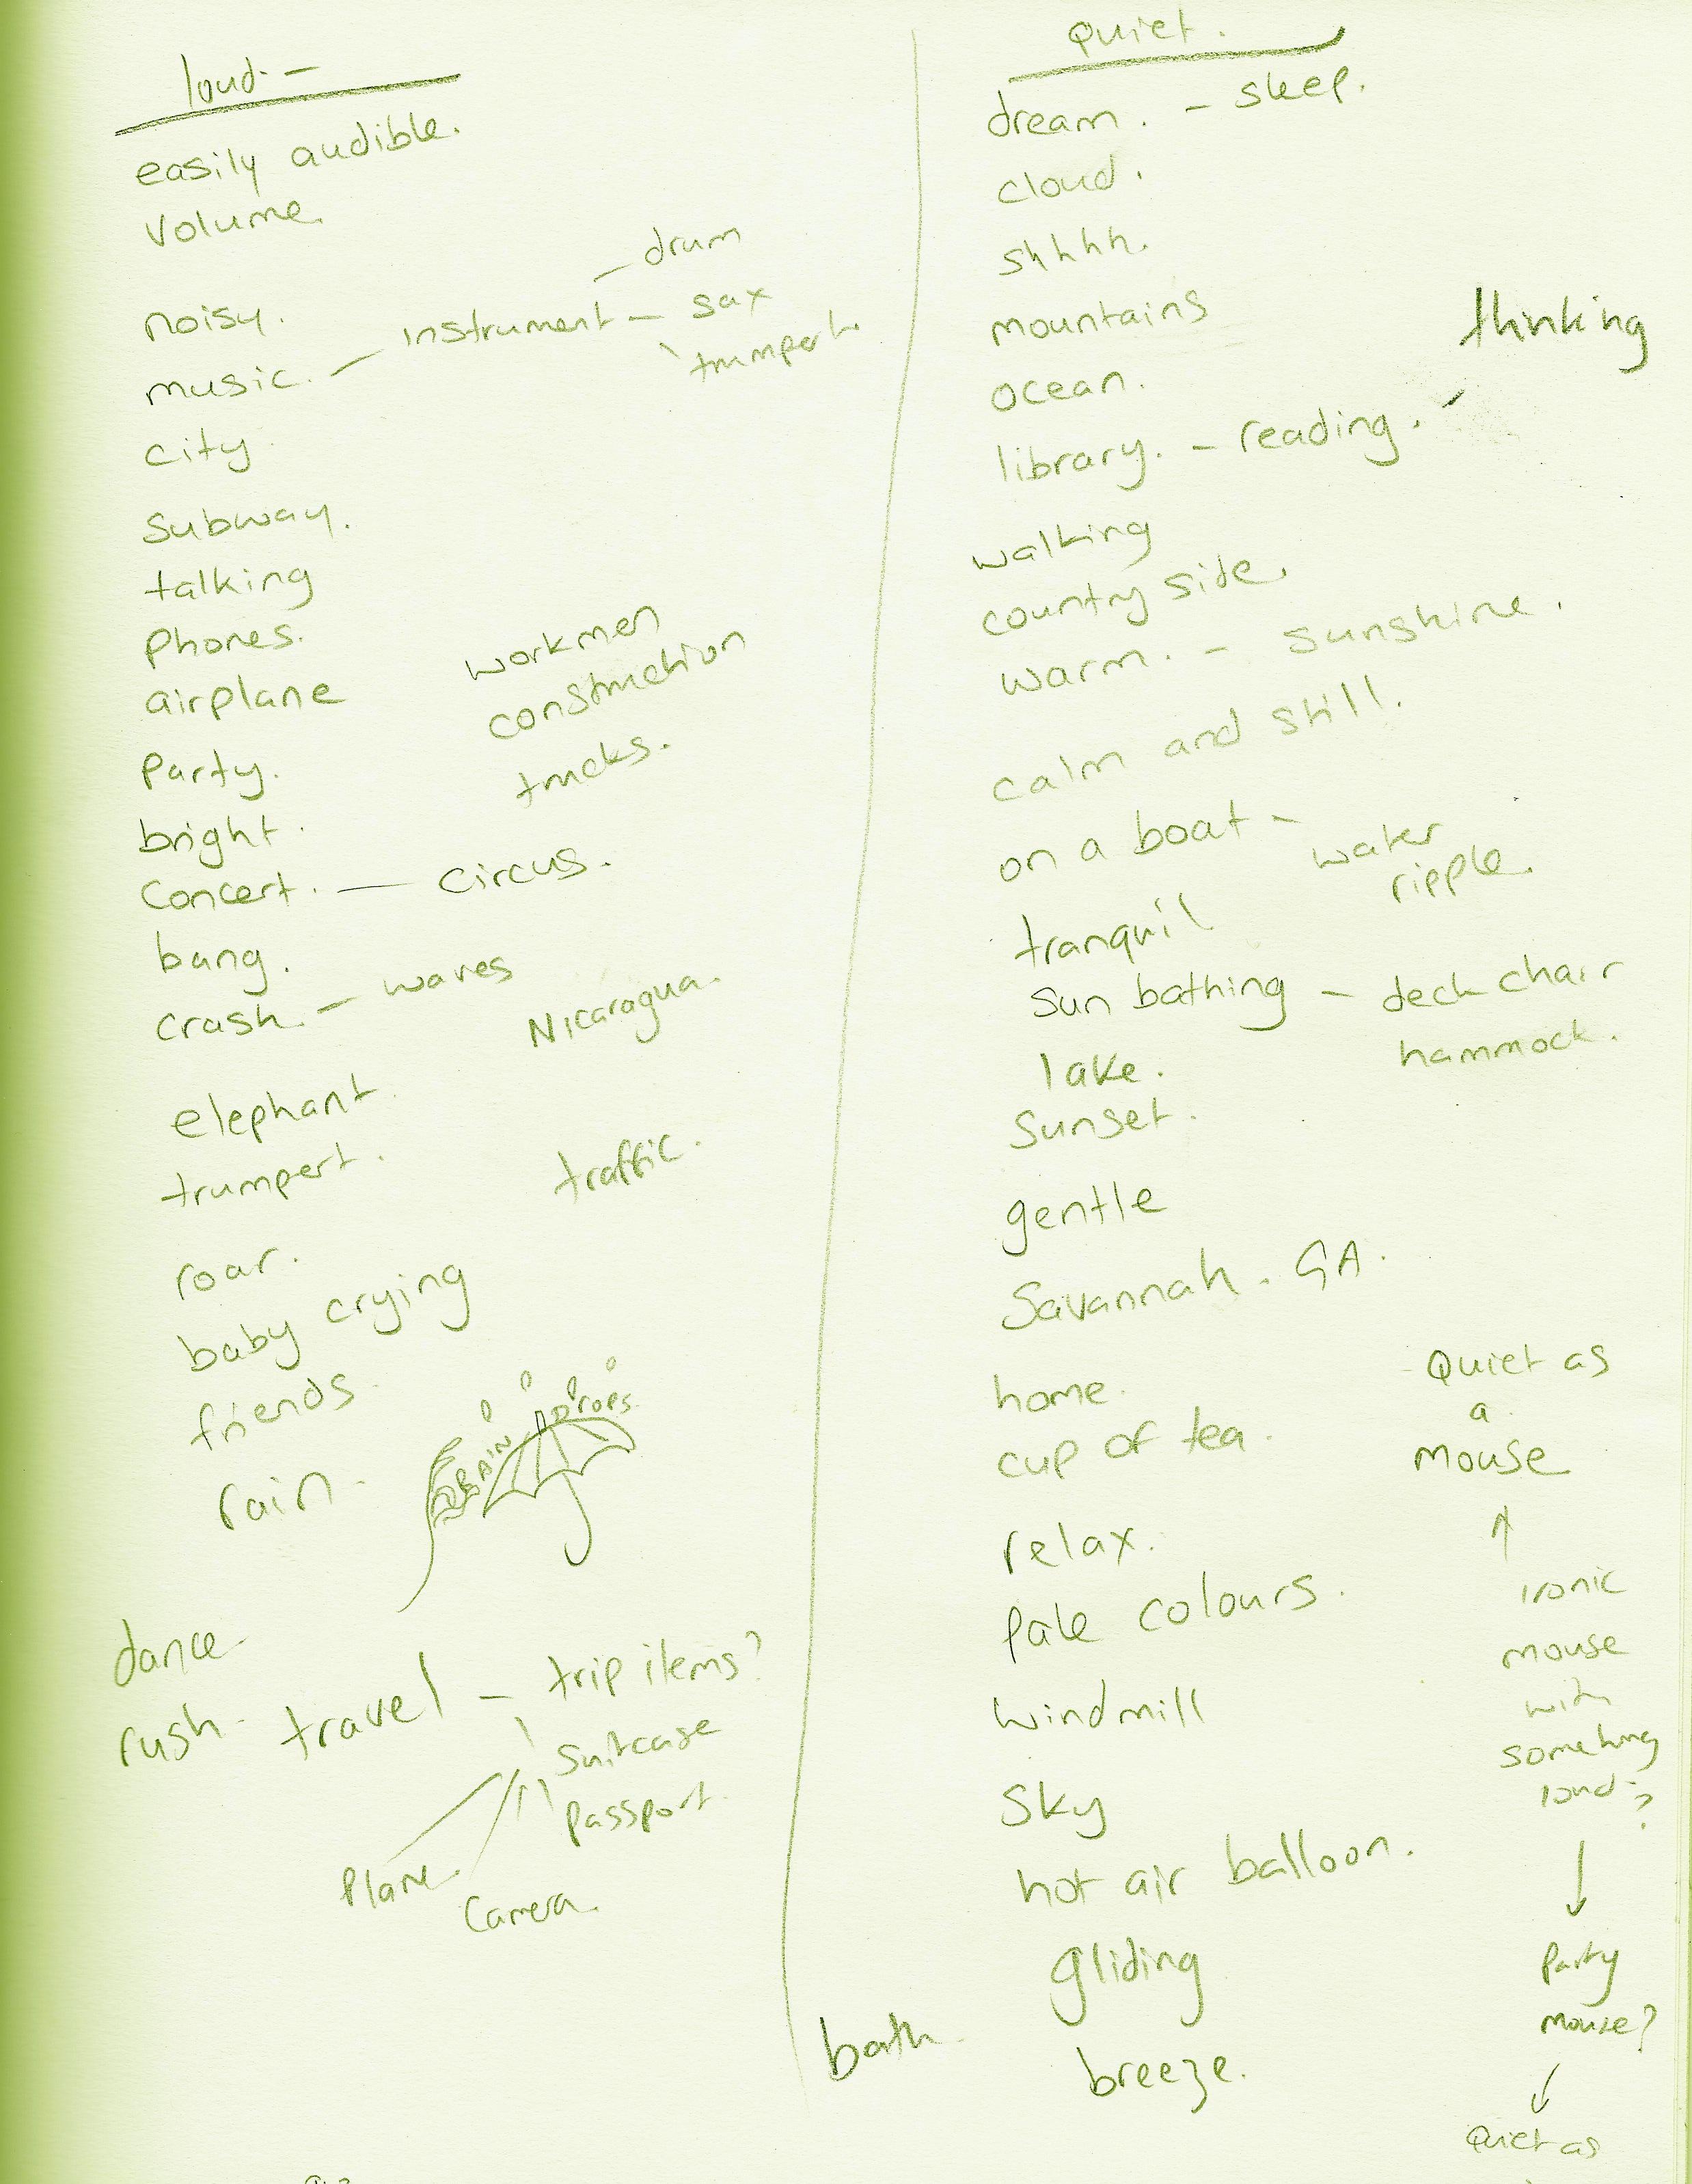 loud. —
easily audible.
volume.
noisy.
music. — instrument — drum
sax
trumpert.
city.
subway.
talking
phones.
airplane
workmen
construction
trucks.
party.
bright.
concert. — circus.
bang.
crash. — waves
Nicaragua.
elephant.
trumpert.
traffic.
roar.
baby crying
friends.
rain.
RAIN DROPS
dance
rush. travel — trip items?
suitcase
passport.
plane.
camera.
Quiet.
dream. — sleep.
cloud.
shhhh.
mountains
ocean.
library. — reading. -
thinking
walking
country side.
warm. — sunshine.
calm and still.
on a boat — water
ripple.
tranquil
sun bathing — deck chair
hammock.
lake.
sunset.
gentle
Savannah. GA.
home.
cup of tea.
relax.
pale colours.
windmill
sky
hot air balloon.
gliding
bath.
breeze.
Quiet as
a
mouse
↑
ironic
mouse
with
something
loud?
↓
party
mouse?
↓
Quiet as